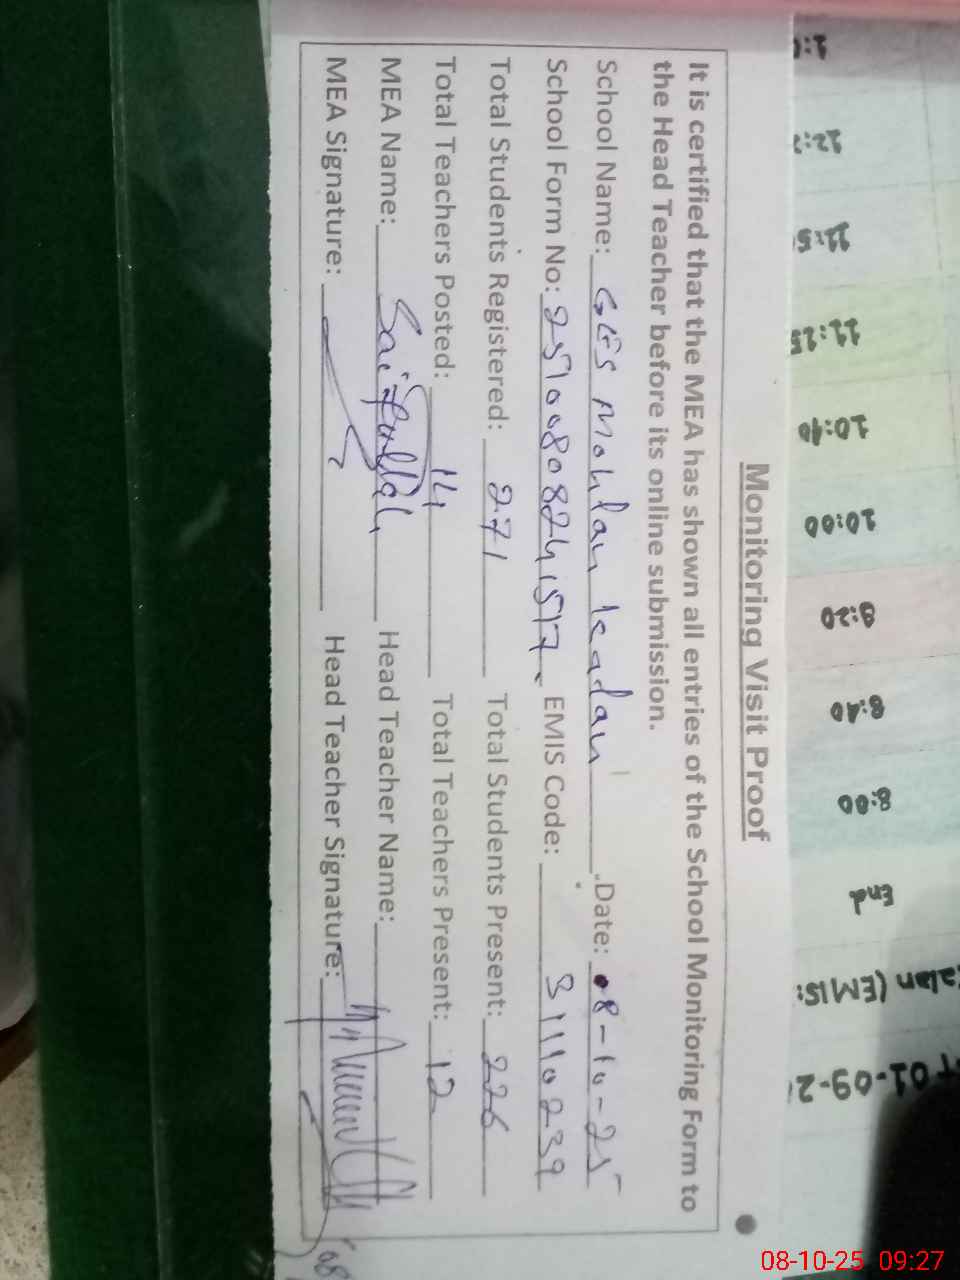 Monitoring Visit Proof
It is certified that the MEA has shown all entries of the School Monitoring Form to
the Head Teacher before its online submission.
School Name: GES Mohlan kadan Date: 8-10-25
School Form No: 25100808241517 EMIS Code: 31110239
Total Students Registered: 271 Total Students Present: 226
Total Teachers Posted: 14 Total Teachers Present: 12
MEA Name: Saifullah Head Teacher Name:
MEA Signature: Head Teacher Signature:
11:25
10:40
10:00
9:20
8:40
8:00
End
(EMIS:
01-09-2
08-10-25 09:27